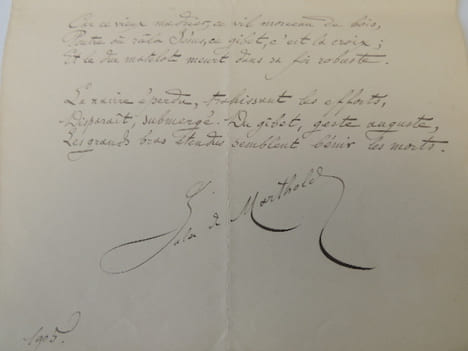 Car ce vieux madrier, ce vil morceau du bois,
Poutre où râla Jésus, ce gibet, c'est la croix ;
Et le dur matelot meurt dans sa foi robuste.
Le navire éperdu, trahissant les efforts,
Disparaît, submergé. Du gibet, geste auguste,
Les grands bras étendus semblent bénir les morts.
Jules de Marthold
1905.